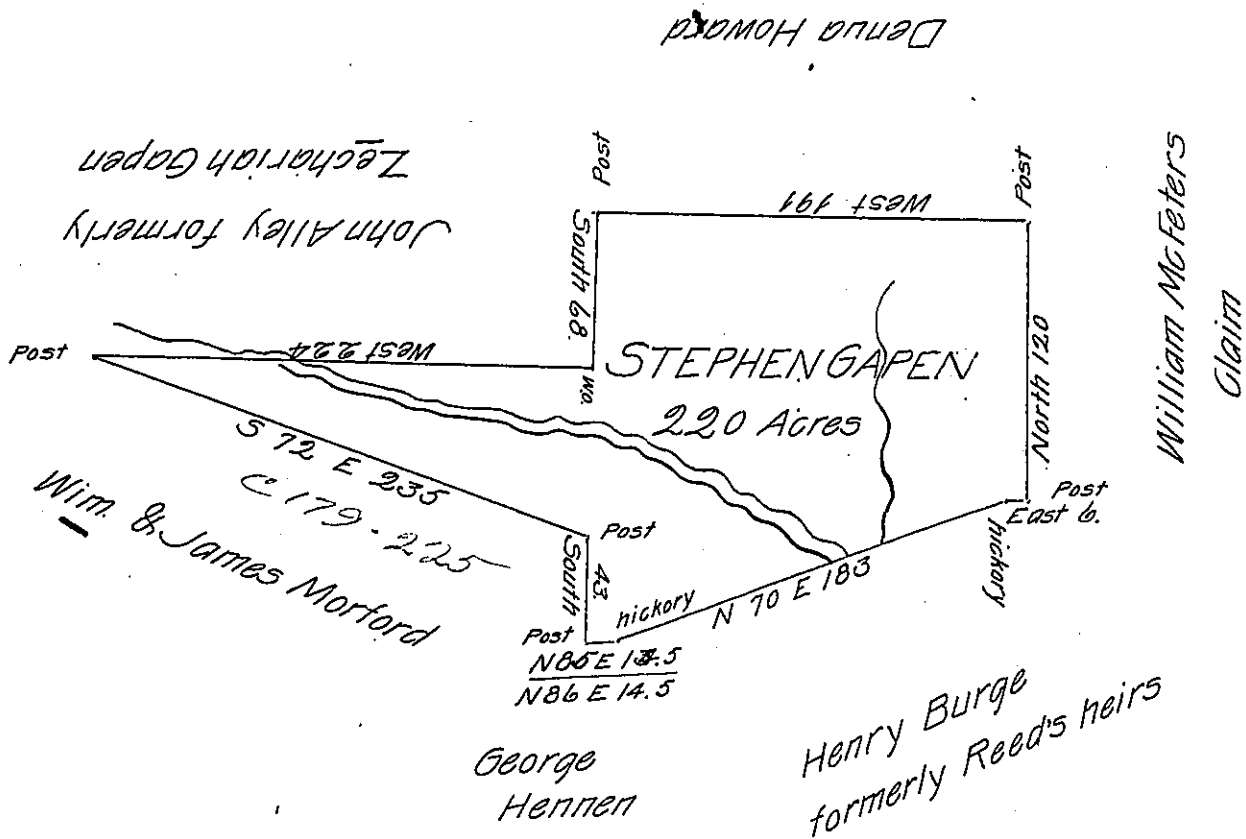 Denua Howard
Zechariah Gapen
John Alley formerly
Post
Post
West 191
South 68.
William McFeters
Claim
Post
West 224
W.O.
STEPHEN GAPEN
220 Acres
North 120
S 72 E 235
C 179-225
Wim. & James Morford
Post
South 43
Post
East 6.
hickory
hickory
N 70 E 183
Post
N86 E 14.5
George
Hennen
Henry Burge
formerly Reed's heirs